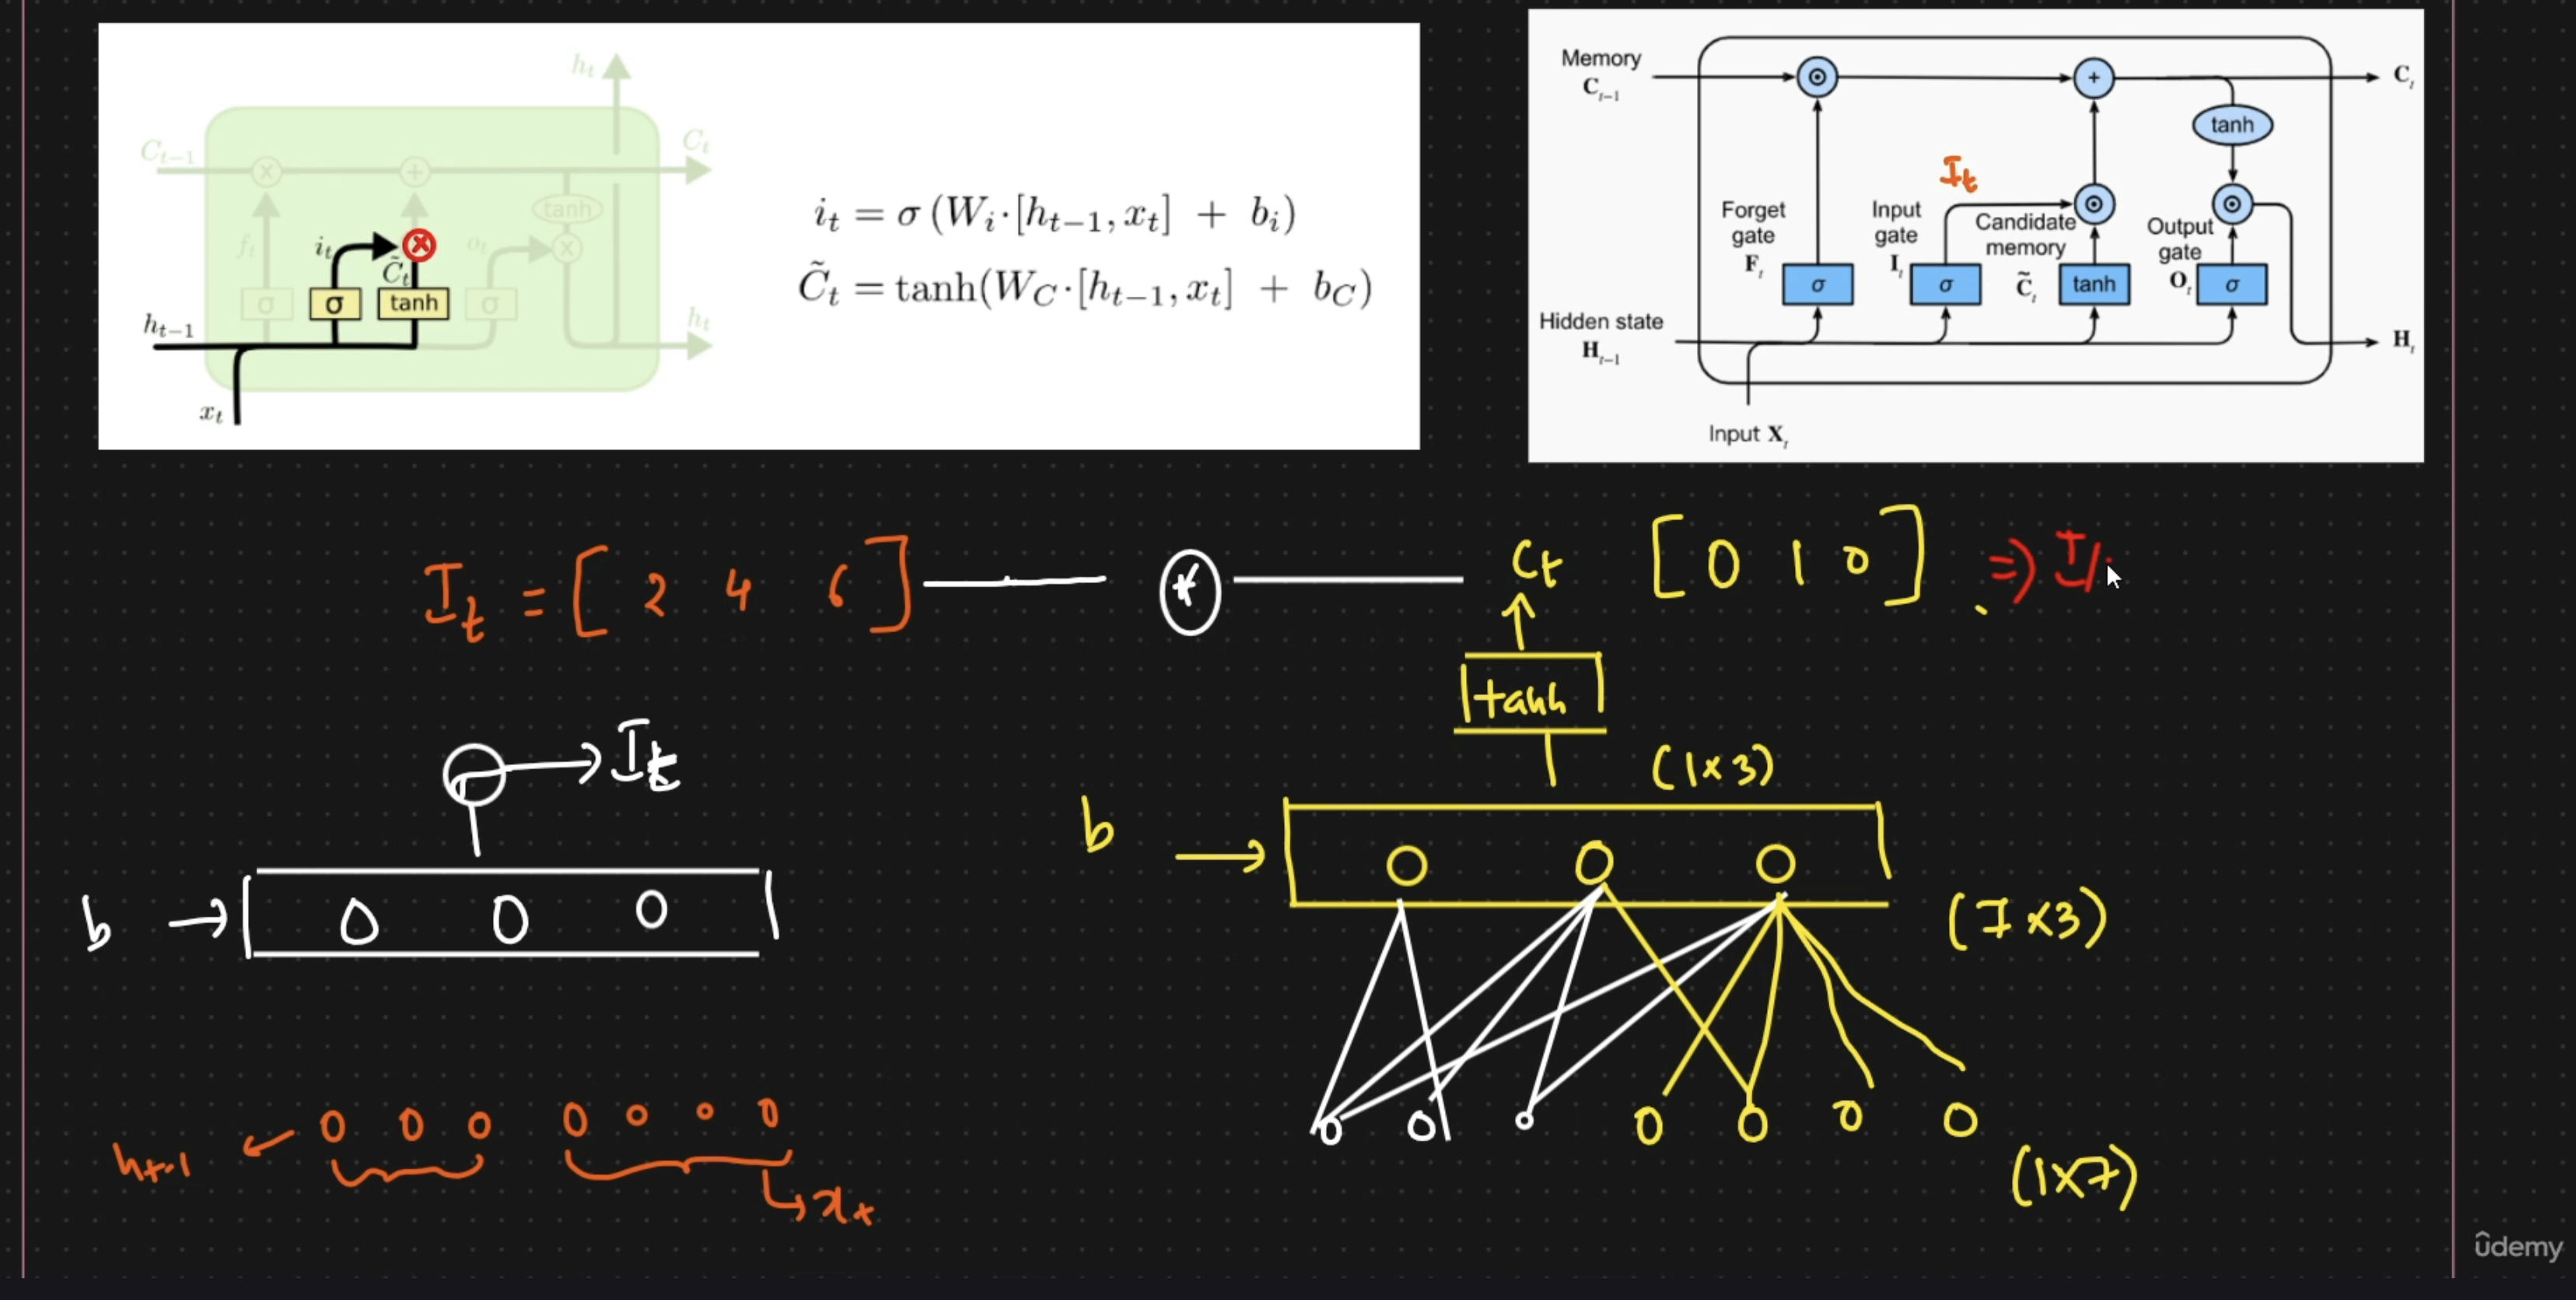 h_t
C_{t-1}
C_t
tanh
f_t
i_t
C̃_t
o_t
σ
σ
tanh
σ
h_{t-1}
h_t
x_t
i_t = σ (W_i·[h_{t-1}, x_t] + b_i)
C̃_t = tanh(W_C·[h_{t-1}, x_t] + b_C)
Memory
C_{t-1}
C_t
tanh
I_t
Forget
gate
F_t
Input
gate
I_t
Candidate
memory
C̃_t
Output
gate
O_t
σ
σ
tanh
σ
Hidden state
H_{t-1}
H_t
Input X_t
I_t = [ 2 4 6 ]
*
C_t [ 0 1 0 ] ⇒ I
tanh
(1×3)
I_t
b →
b →
(7×3)
h_{t-1}
x_t
(1×7)
ûdemy